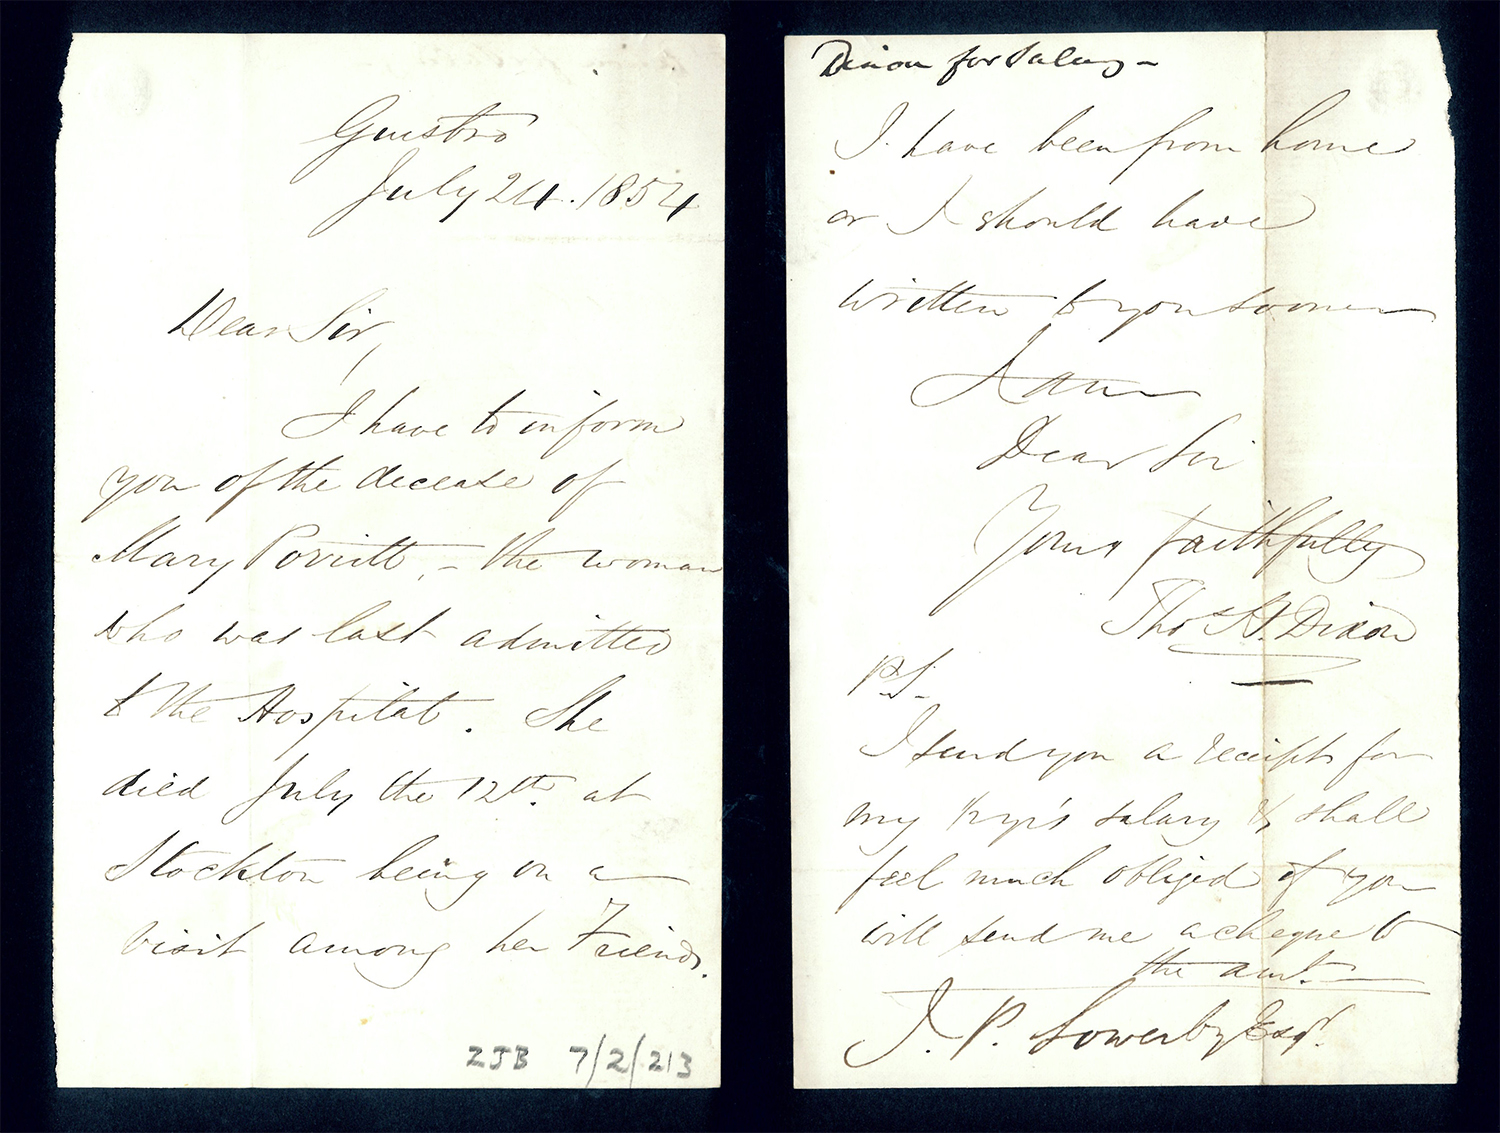 Guisbro
July 24. 1854
Dear Sir,
I have to inform
you of the decease of
Mary Porritt, - the woman
who was last admitted
to the Hospital. She
died July the 12th. at
Stockton being on a
visit among her Friends.
ZJB 7/2/213
Dixon for Salary -
I have been from home
or I should have
written to you sooner
I am
Dear Sir
Yours faithfully
Thos H. Dixon
P.S.
I send you a receipt for
my ½ yr's salary & shall
feel much obliged if you
will send me a cheque to
the amt.
J. P. Sowerby Esqr.